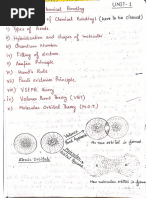 Chemical Bonding
UNIT-I
of Chemical Bonding (have to be cleared)
i) Types of Bonds
ii) Hybridisation and shapes of molecules
iii) Quantum Number
iv) Filling of electron
v) Aufbau Principle
vi) Hund's Rule
vii) Pauli exclusion Principle
viii) VSEPR theory
ix) Valence Bond Theory (VBT)
x) Molecular Orbital Theory (M.O.T)
Atomic Orbitals